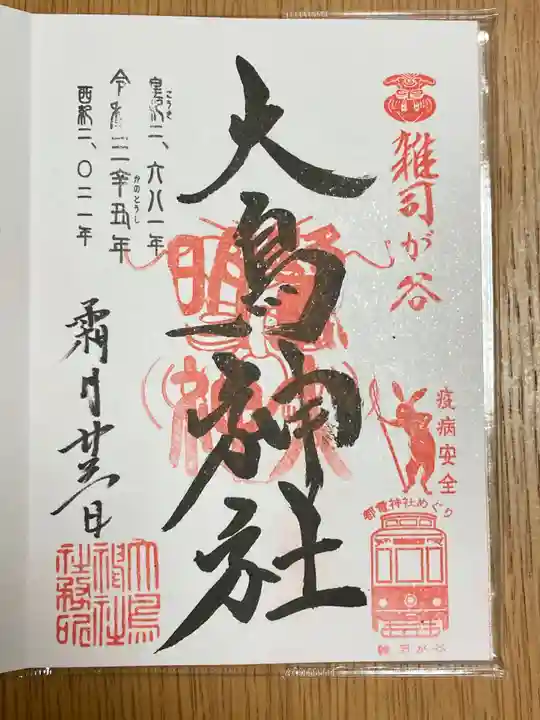 雑司が谷
疫病安全
都電神社めぐり
雑司が谷
大鳥神社
皇紀二、六八一年
こうき
令和三辛丑年
かのとうし
西紀二、〇二一年
霜月廿三日
大鳥
神社
社務印